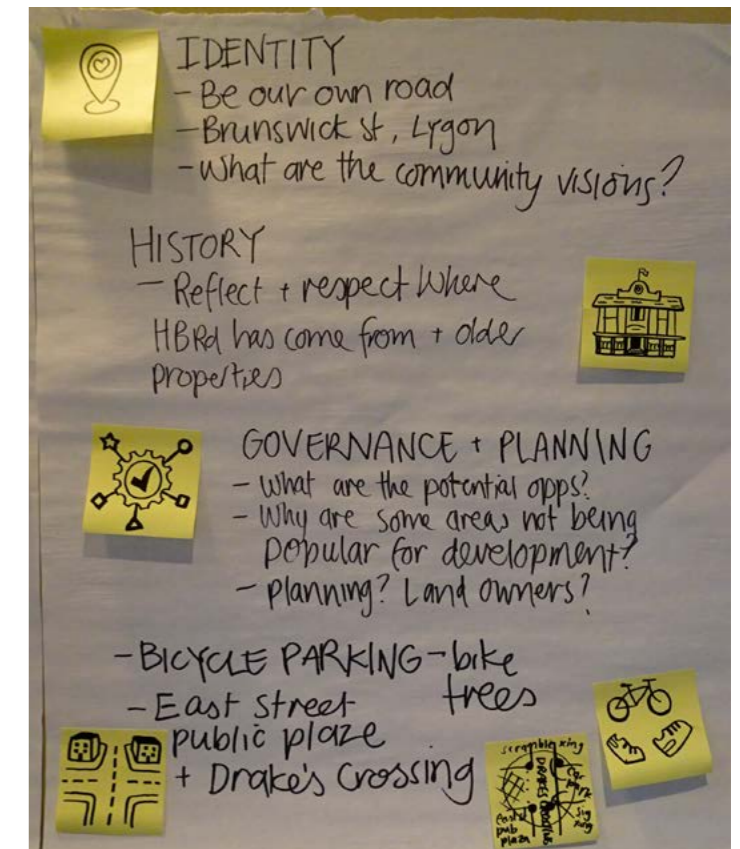 IDENTITY
- Be our own road
- Brunswick st, Lygon
- What are the community visions?
HISTORY
- Reflect + respect where
HBRd has come from + older
properties
GOVERNANCE + PLANNING
- What are the potential opps?
- Why are some areas not being
popular for development?
- planning? Land owners?
- BICYCLE PARKING - bike
trees
- East Street
public plaze
+ Drake's Crossing
scramble xing
DRAKES CROSSING
east st
pub
plaza
sig
xing